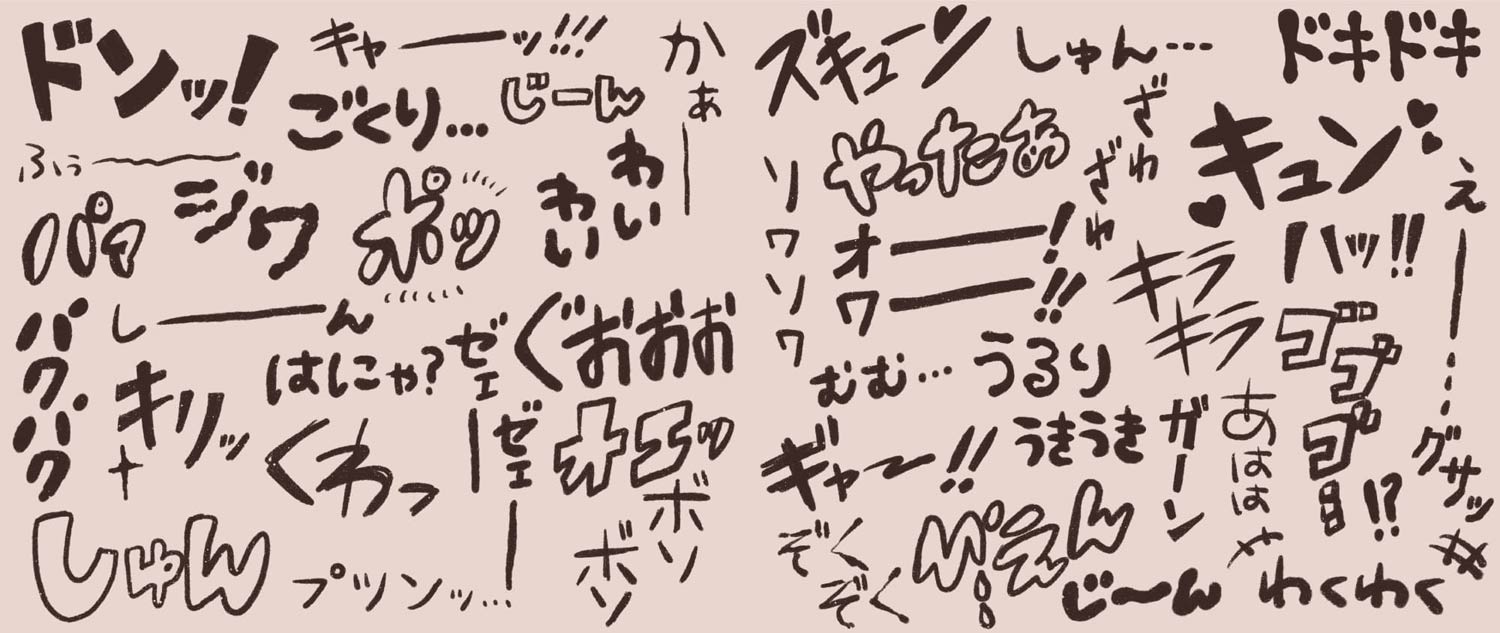 ドンッ!
キャーーッ!!!
かぁー
ごくり…
じーん
ふぅ〜
パァ
ジワ
ポッ
わい
わい
しーーん
パクパク
キリッ
はにゃ?
ゼェー
ゼェー
ぐおおお
くわっ
オエッ
ボソ
ボソ
しゅん
プツンッ…
ズキューン
しゅん…
ドキドキ
ざわ
ざわ
やったぁ
キュン
ソワソワ
オーー!
ワーー!!
えー…
ハッ!!
キラ
キラ
ゴゴゴ
むむ…
うるり
うきうき
ガーン
あはは
グサッ
ギャー!!
ぞく
ぞく
ぴえん
!?
じ〜ん
わくわく